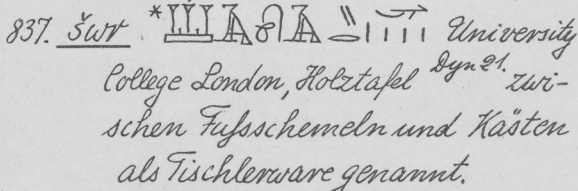 837. šwr * University
College London, Holztafel Dyn 21. zwi-
schen Fußschemeln und Kästen
als Tischlerware genannt.